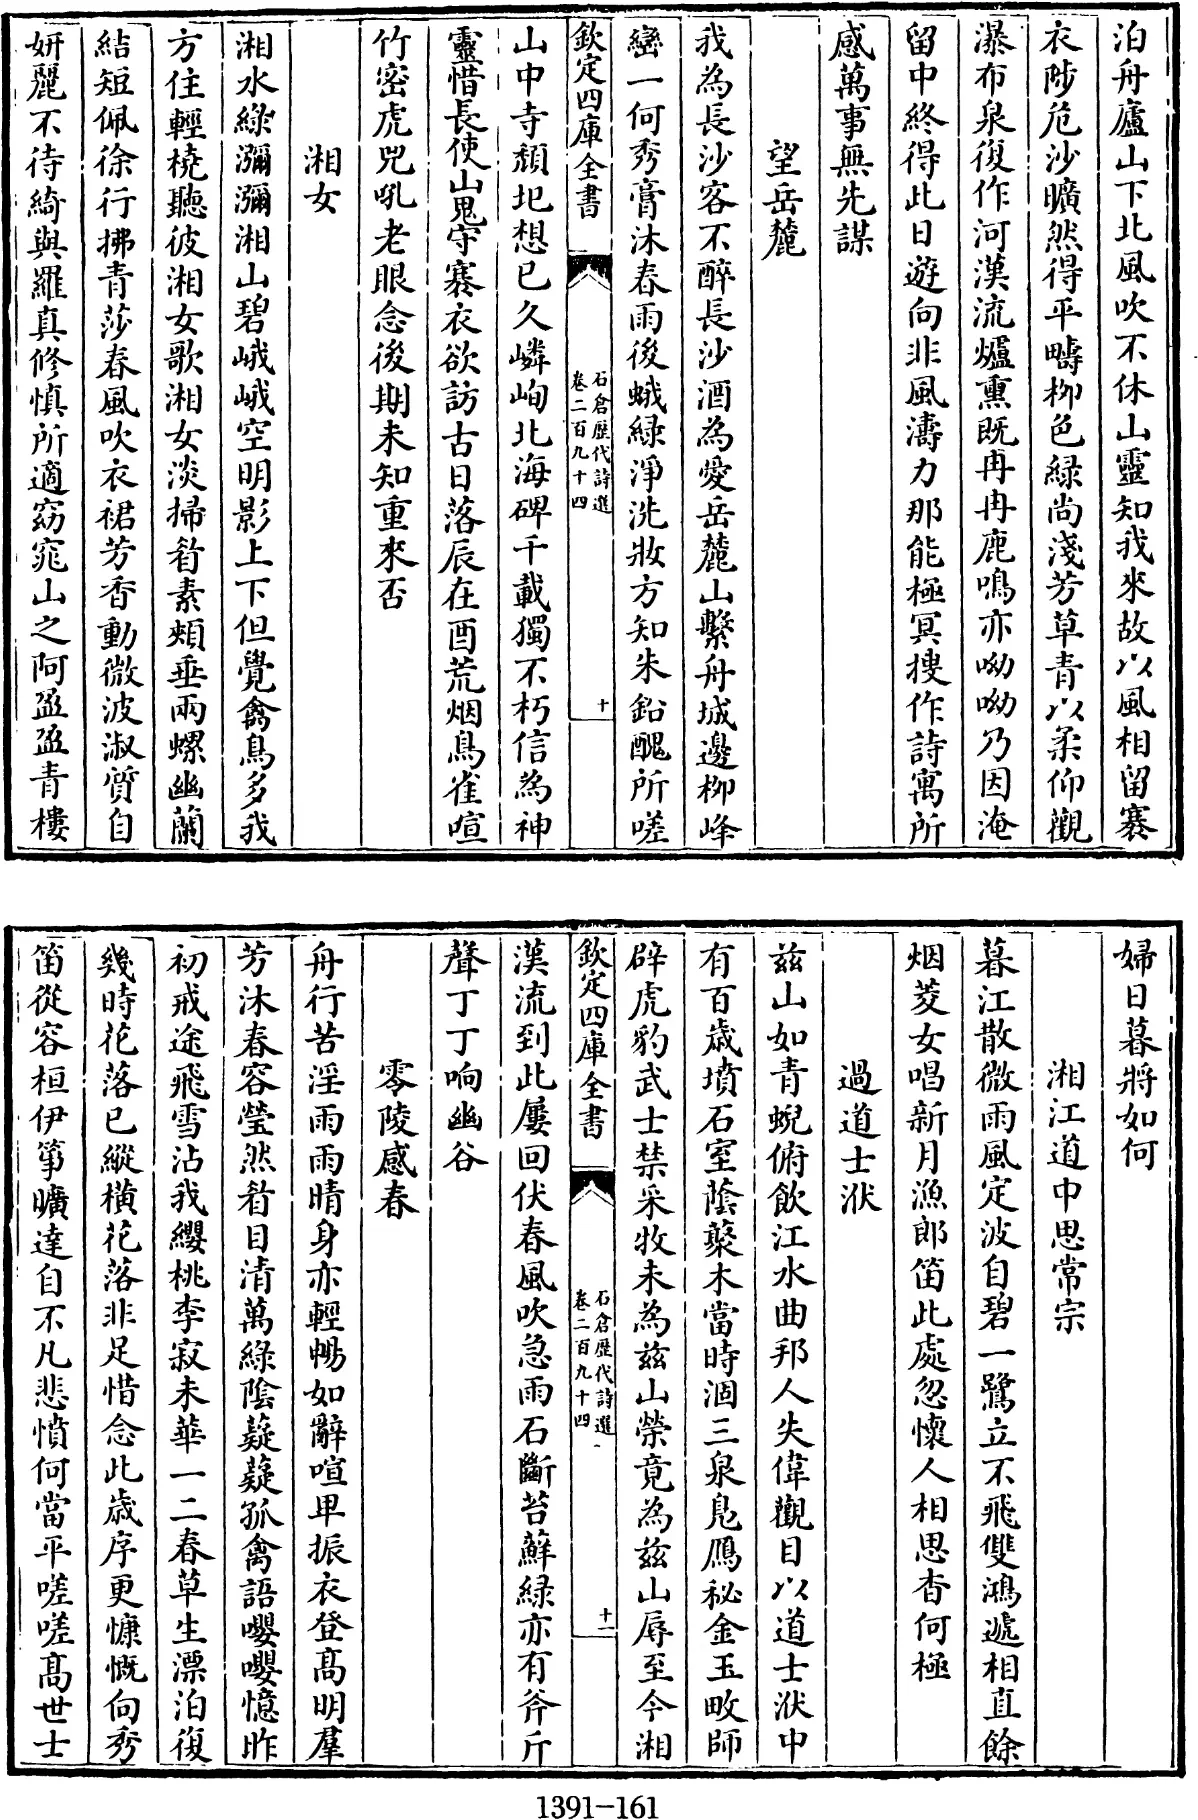 泊舟廬山下北風吹不休山靈知我來故以風相留褰
衣陟危沙曠然得平疇柳色緑尚淺芳草青以柔仰觀
瀑布泉復作河漢流爐熏既冉冉鹿鳴亦呦呦乃因淹
留中終得此日遊向非風濤力那能極冥搜作詩寓所
感萬事無先謀
望岳麓
我為長沙客不醉長沙酒為愛岳麓山繫舟城邊柳峰
巒一何秀膏沐春雨後蛾緑淨洗妝方知朱鉛醜所嗟
欽定四庫全書
石倉歴代詩選
卷二百九十四
十
山中寺頽圮想已久嶙峋北海碑千載獨不朽信為神
靈惜長使山鬼守褰衣欲訪古日落辰在酉荒烟鳥雀喧
竹密虎兕吼老眼念後期未知重來否
湘女
湘水綠瀰瀰湘山碧峨峨空明影上下但覺禽鳥多我
方住輕橈聽彼湘女歌湘女淡掃眉素頰垂兩螺幽蘭
結短佩徐行拂青莎春風吹衣裙芳香動微波淑質自
妍麗不待綺與羅真修慎所適窈窕山之阿盈盈青樓
婦日暮將如何
湘江道中思常宗
暮江散微雨風定波自碧一鷺立不飛雙鴻遞相直餘
烟菱女唱新月漁郎笛此處忽懷人相思杳何極
過道士洑
兹山如青蜺俯飲江水曲邦人失偉觀目以道士洑中
有百歳墳石室蔭藂木當時涸三泉鳬鴈秘金玉畋師
辟虎豹武士禁采牧未為兹山榮竟為兹山辱至今湘
欽定四庫全書
石倉歴代詩選
卷二百九十四
十一
漢流到此屢回伏春風吹急雨石斷苔蘚緑亦有斧斤
聲丁丁响幽谷
零陵感春
舟行苦淫雨雨晴身亦輕暢如辭喧卑振衣登高明羣
芳沐春容瑩然眉目清萬綠陰薿薿孤禽語嚶嚶憶昨
初戒途飛雪沾我纓桃李寂未華一二春草生漂泊復
幾時花落已縱橫花落非足惜念此歳序更慷慨向秀
笛從容桓伊筝曠達自不凡悲憤何當平嗟嗟髙世士
1391-161